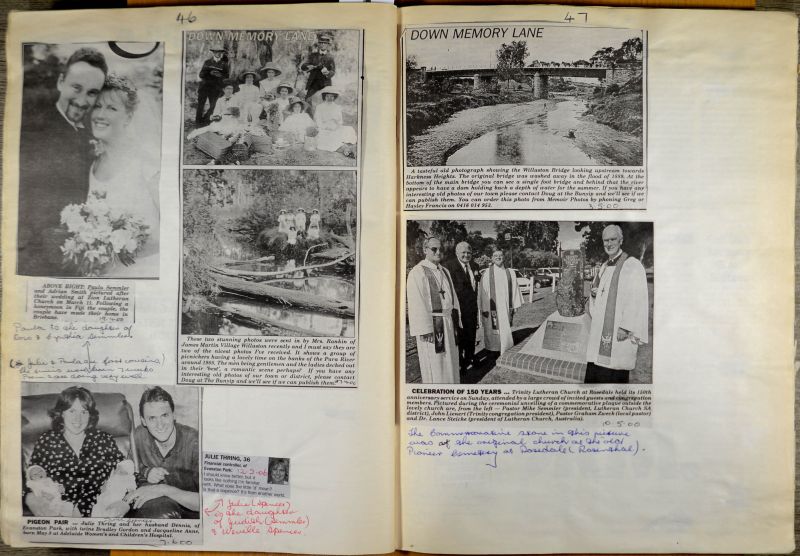 46
ABOVE RIGHT: Paula Semmler
and Adrian Smith pictured after
their wedding at Zion Lutheran
Church on March 11. Following a
honeymoon in Fiji the couple, the
couple have made their home in
Brisbane.
Paula is the daughter of
(& Julie & Paula are first cousins)
PIGEON PAIR ... Julie Thring and her husband Dennis, of
Evanston Park, with twins Bradley Gordon and Jacqueline Anne,
born May 8 at Adelaide Women's and Children's Hospital.
7.6.00
DOWN MEMORY LANE
These two stunning photos were sent in by Mrs. Rankin of
James Martin Village Willaston recently and I must say they are
two of the nicest photos I've received. It shows a group of
picnickers having a lovely time on the banks of the Para River
around 1908. The men being gentlemen and the ladies decked out
in their 'best', a romantic scene perhaps? If you have any
interesting old photos of our town or district, please contact
Doug at The Bunyip and we'll see if we can publish them.
JULIE THRING, 36
Financial controller, of
Evanston Park:
12-7-06
I should know better, but it
looks like nothing I'm familiar
with. What does the little 'd' mean?
Is that a sixpence? It's from another
world.
Julie (Spencer)
is the daughter
of Judith (Semmler)
& Neville Spencer
47
DOWN MEMORY LANE
A tasteful old photograph showing the Willaston Bridge looking upstream towards
Harkness Heights. The original bridge was washed away in the flood of 1889. At the
bottom of the main bridge you can see a single foot bridge and behind that the river
appears to have a dam holding back a depth of water for the summer. If you have any
interesting old photos of our town please contact Doug at the Bunyip and we'll see if we
can publish them. You can order this photo from Memoir Photos by phoning Greg or
Hayley Francis on 0416 014 952.
3.5.00
CELEBRATION OF 150 YEARS ... Trinity Lutheran Church at Rosedale held its 150th
anniversary service on Sunday, attended by a large crowd of invited guests and congregation
members. Pictured during the ceremonial unveiling of a commemorative plaque outside the
lovely church are, from the left — Pastor Mike Semmler (president, Lutheran Church SA
district), John Lienert (Trinity congregation president), Pastor Graham Zweck (local pastor)
and Dr. Lance Steicke (president of Lutheran Church, Australia).
10.5.00
The Commemorative stone in this picture
was at the original church at the old
Pioneer Cemetery at Rosedale (Rosenthal).